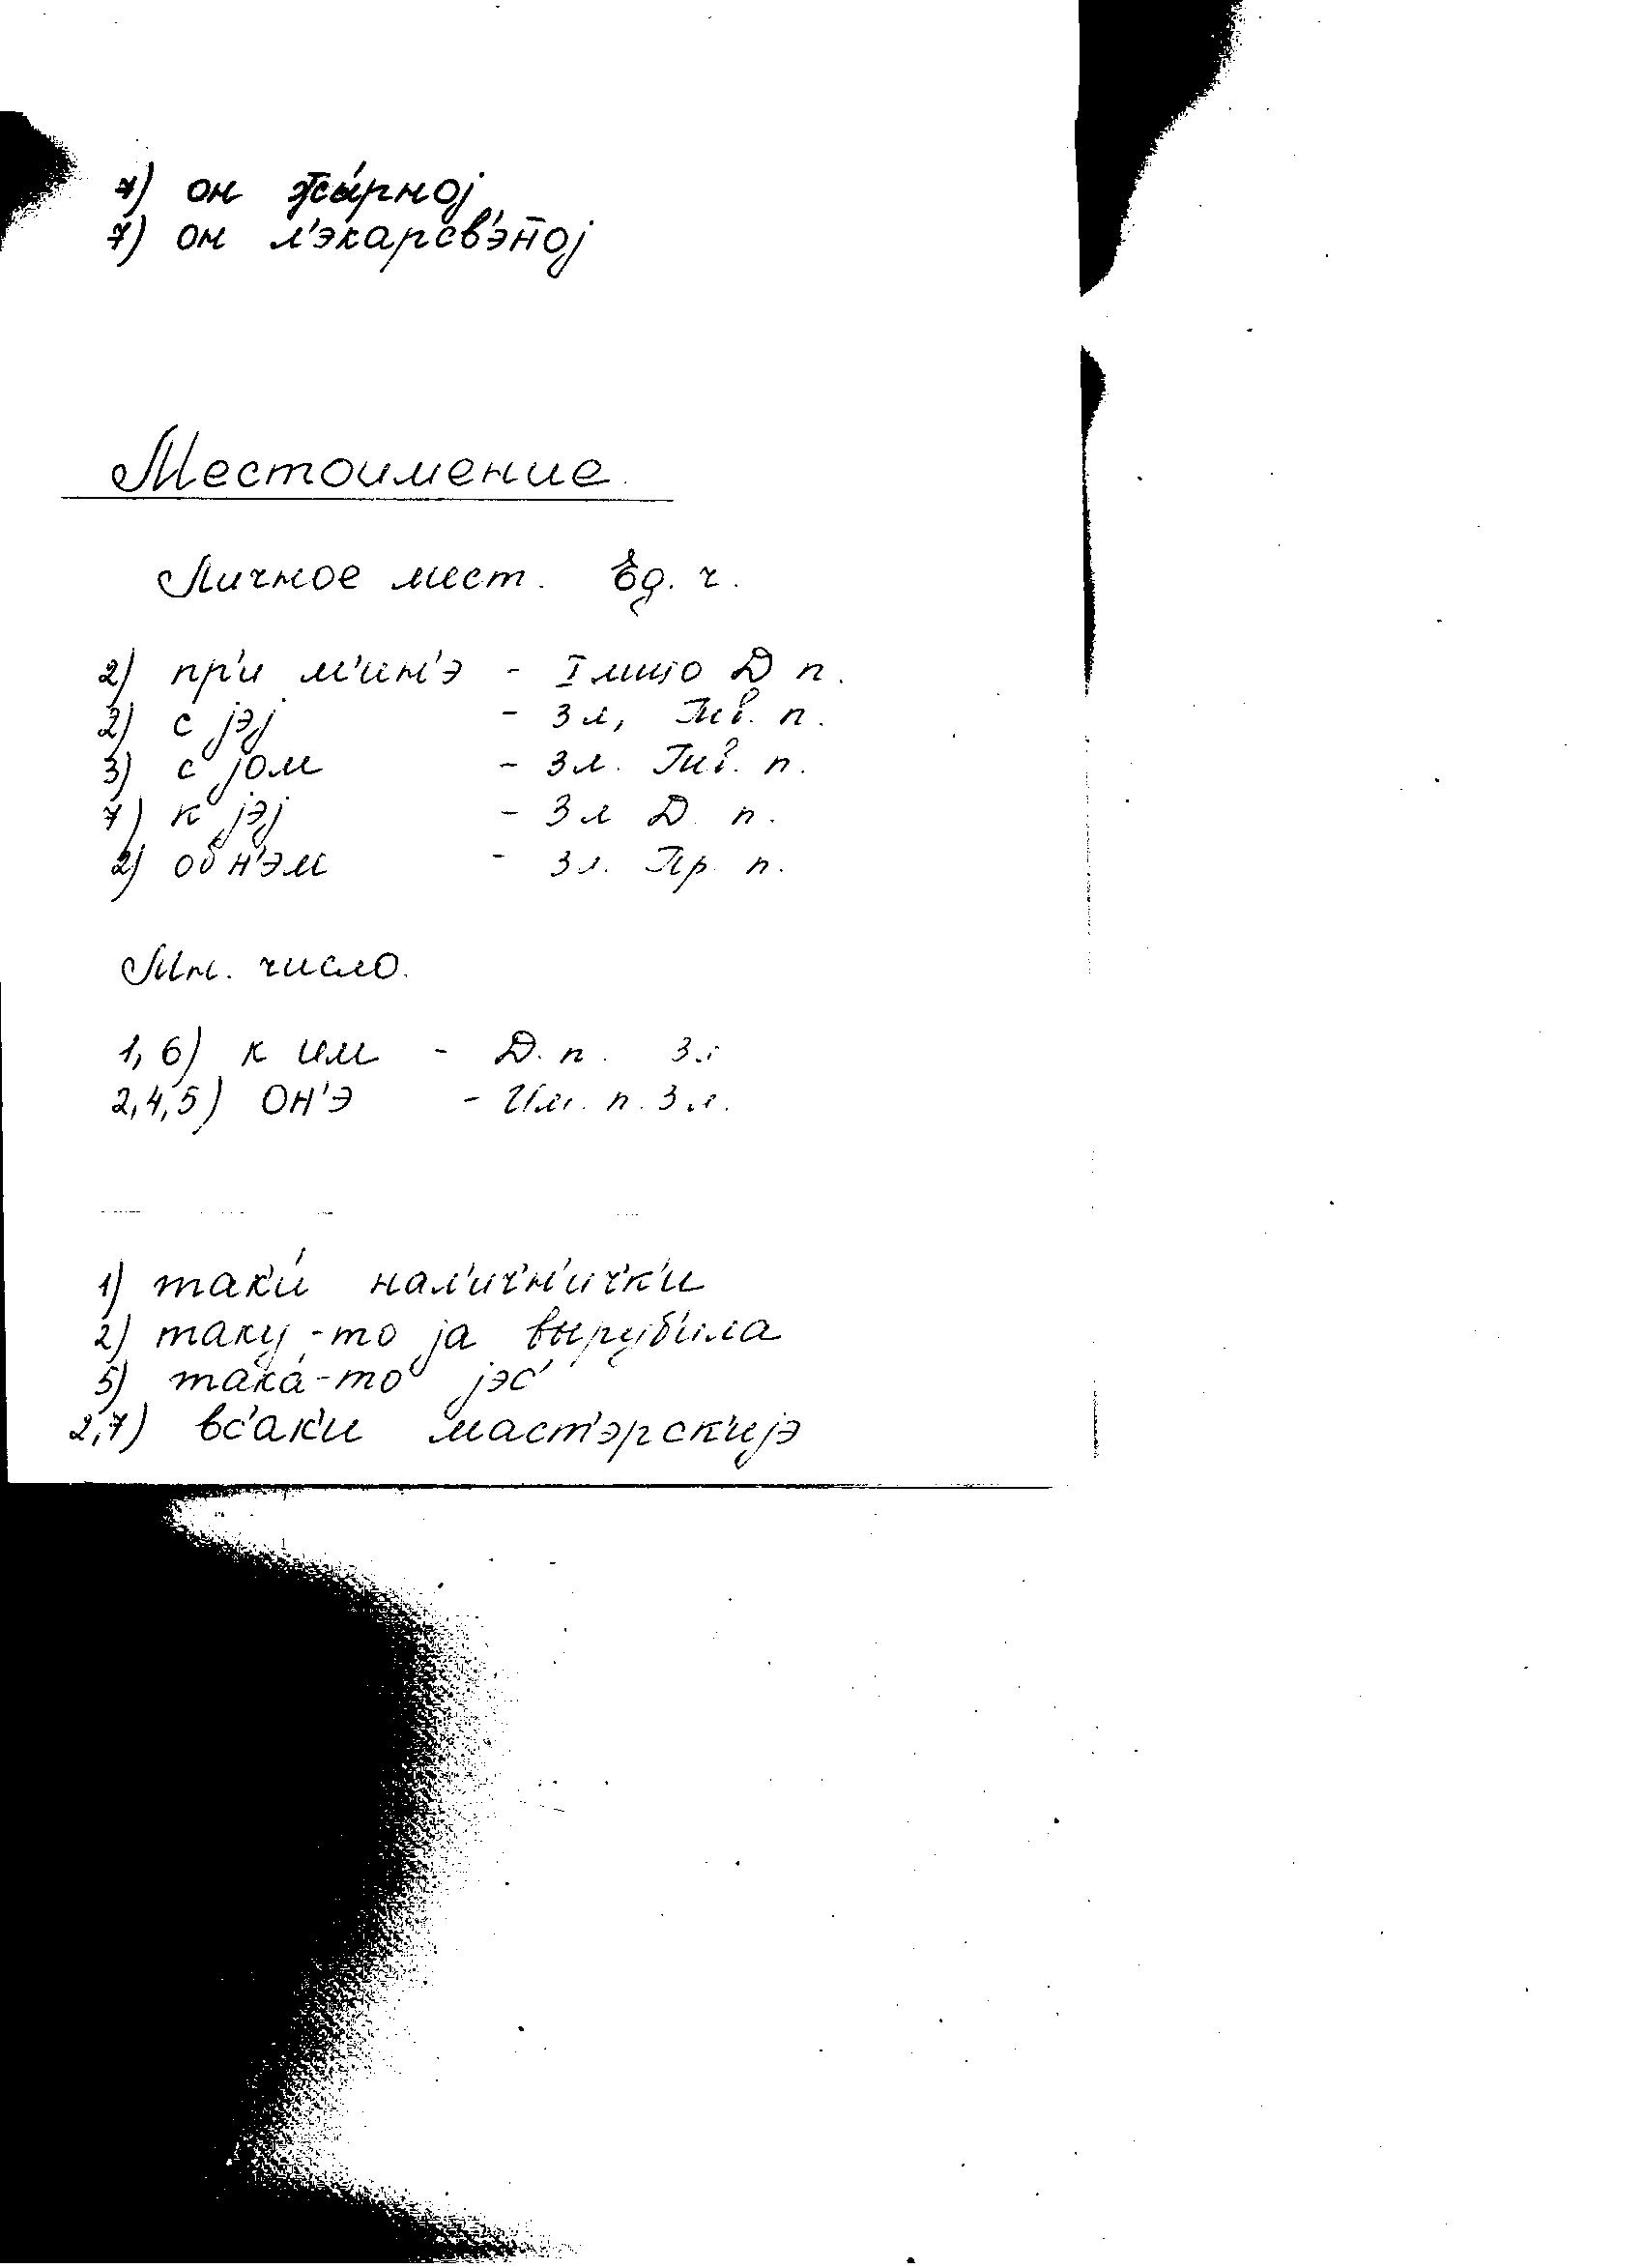 7) он жы́рној
7) он л'экарсв'эн̄ој
Местоимение.
Личное мест. Ед. ч.
2) пр'и м'ин'э - I лицо Д п.
2) с јэј - 3 л, Тв. п.
3) с јом - 3 л. Тв. п.
7) к јэј - 3 л Д. п.
2) об н'эм - 3 л. Пр. п.
Мн. число.
1, 6) к им - Д. п. 3 л
2, 4, 5) он'э - Им. п. 3 л.
1) так'и́ нал'ич'н'ич'к'и
2) таку́-то ја вырубила
5) така́-то јэс'
2, 7) вс'ак'и маст'эрск'ијэ